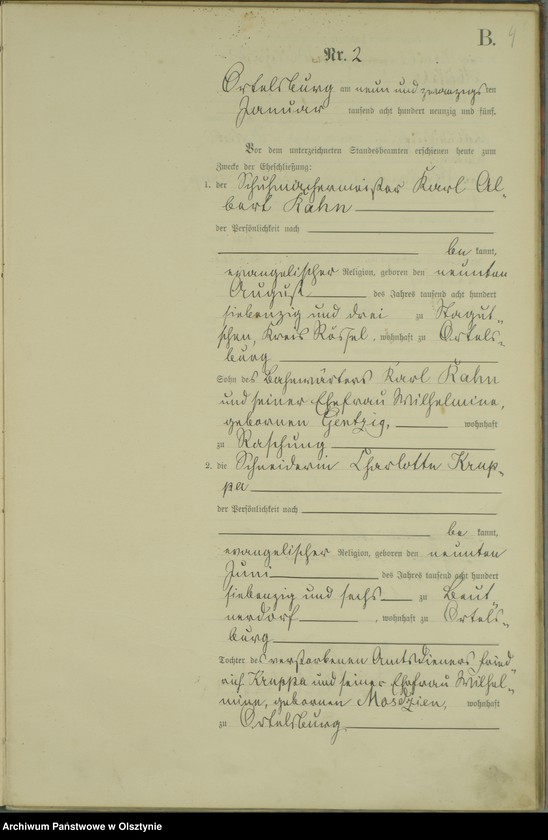 B. 4
Nr. 2
Ortelsburg am neun und zwanzigsten
Januar tausend acht hundert neunzig und fünf.
Vor dem unterzeichneten Standesbeamten erschienen heute zum
Zwecke der Eheschließung:
1. der Schuhmachermeister Karl Al-
bert Kahn
der Persönlichkeit nach
be kannt,
evangelischer Religion, geboren den neunten
August des Jahres tausend acht hundert
siebenzig und drei zu
Kreis Rössel, wohnhaft zu Ortels-
burg
Sohn des Bahnwärters Karl Kahn
und seiner Ehefrau Wilhelmine,
gebornen wohnhaft
zu Raschung
2. die Schneiderin Charlotte Krup-
pa
der Persönlichkeit nach
be kannt,
evangelischer Religion, geboren den neunten
Juni des Jahres tausend acht hundert
siebenzig und sechs zu Beut
nerdorf, wohnhaft zu Ortels-
burg
Tochter des verstorbenen Amtsdieners Fried-
rich Kruppa und seiner Ehefrau Wilhel-
mine, gebornen wohnhaft
zu Ortelsburg
Archiwum Państwowe w Olsztynie